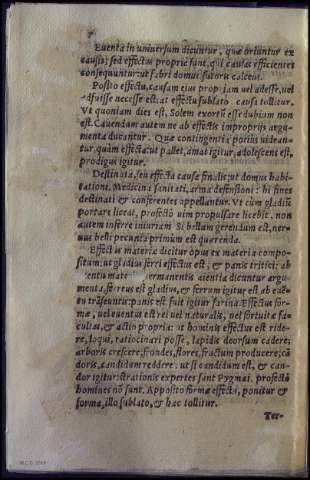 Euenta in uniuersum dicuntur, quæ oriuntur ex
causis; sed effectus proprie sunt, qui causas efficientes
consequuntur: ut fabri domus, sutoris calceus.
Posito effectu, causam eius propriam uel adesse, uel
adfuisse necesse est: at effectu sublato causa tollitur.
Vt quoniam dies est, Solem exortū esse dubium non
est. Cauendum autem ne ab effectis improprijs argu-
menta ducantur. Quæ contingentia potius uidean-
tur, quàm effecta: ut pallet, amat igitur, adolescens est,
prodigus igitur.
Destinata, seu effecta causæ finalis; ut domus habi-
tationi, Medicina sanitati, arma defensioni: hi fines
destinati & conferentes appellantur. Vt cum gladiū
portare liceat, profectò uim propulsare licebit, non
autem inferre iniuriam. Si bellum gerendum est, ner-
uus belli pecunia primum est querenda.
Effectus materiæ dicitur opus ex materia compo-
situm: ut gladius ferri effectus est, & panis tritici: ab
permanentis dicuntur argu-
menta, si ferreus est gladius, & ferrum igitur est
panis est fuit igitur farina. Effectus for-
mæ, uel euentus est rei uel naturalis, uel fortuitæ fa-
cultas, & actio propria: ut hominis effectus est ride-
re, loqui, ratiocinari posse, lapidis deorsum cadere;
arboris crescere, frondes, flores, fructum producere; cā
doris, candidam reddere: ut si candidum est, & can-
dor igitur: si rationis expertes sunt Pygmæi, profectò
homines nō sunt. Apposito formæ effectu, ponitur &
forma, illo sublato, & hæc tollitur.
Ter-